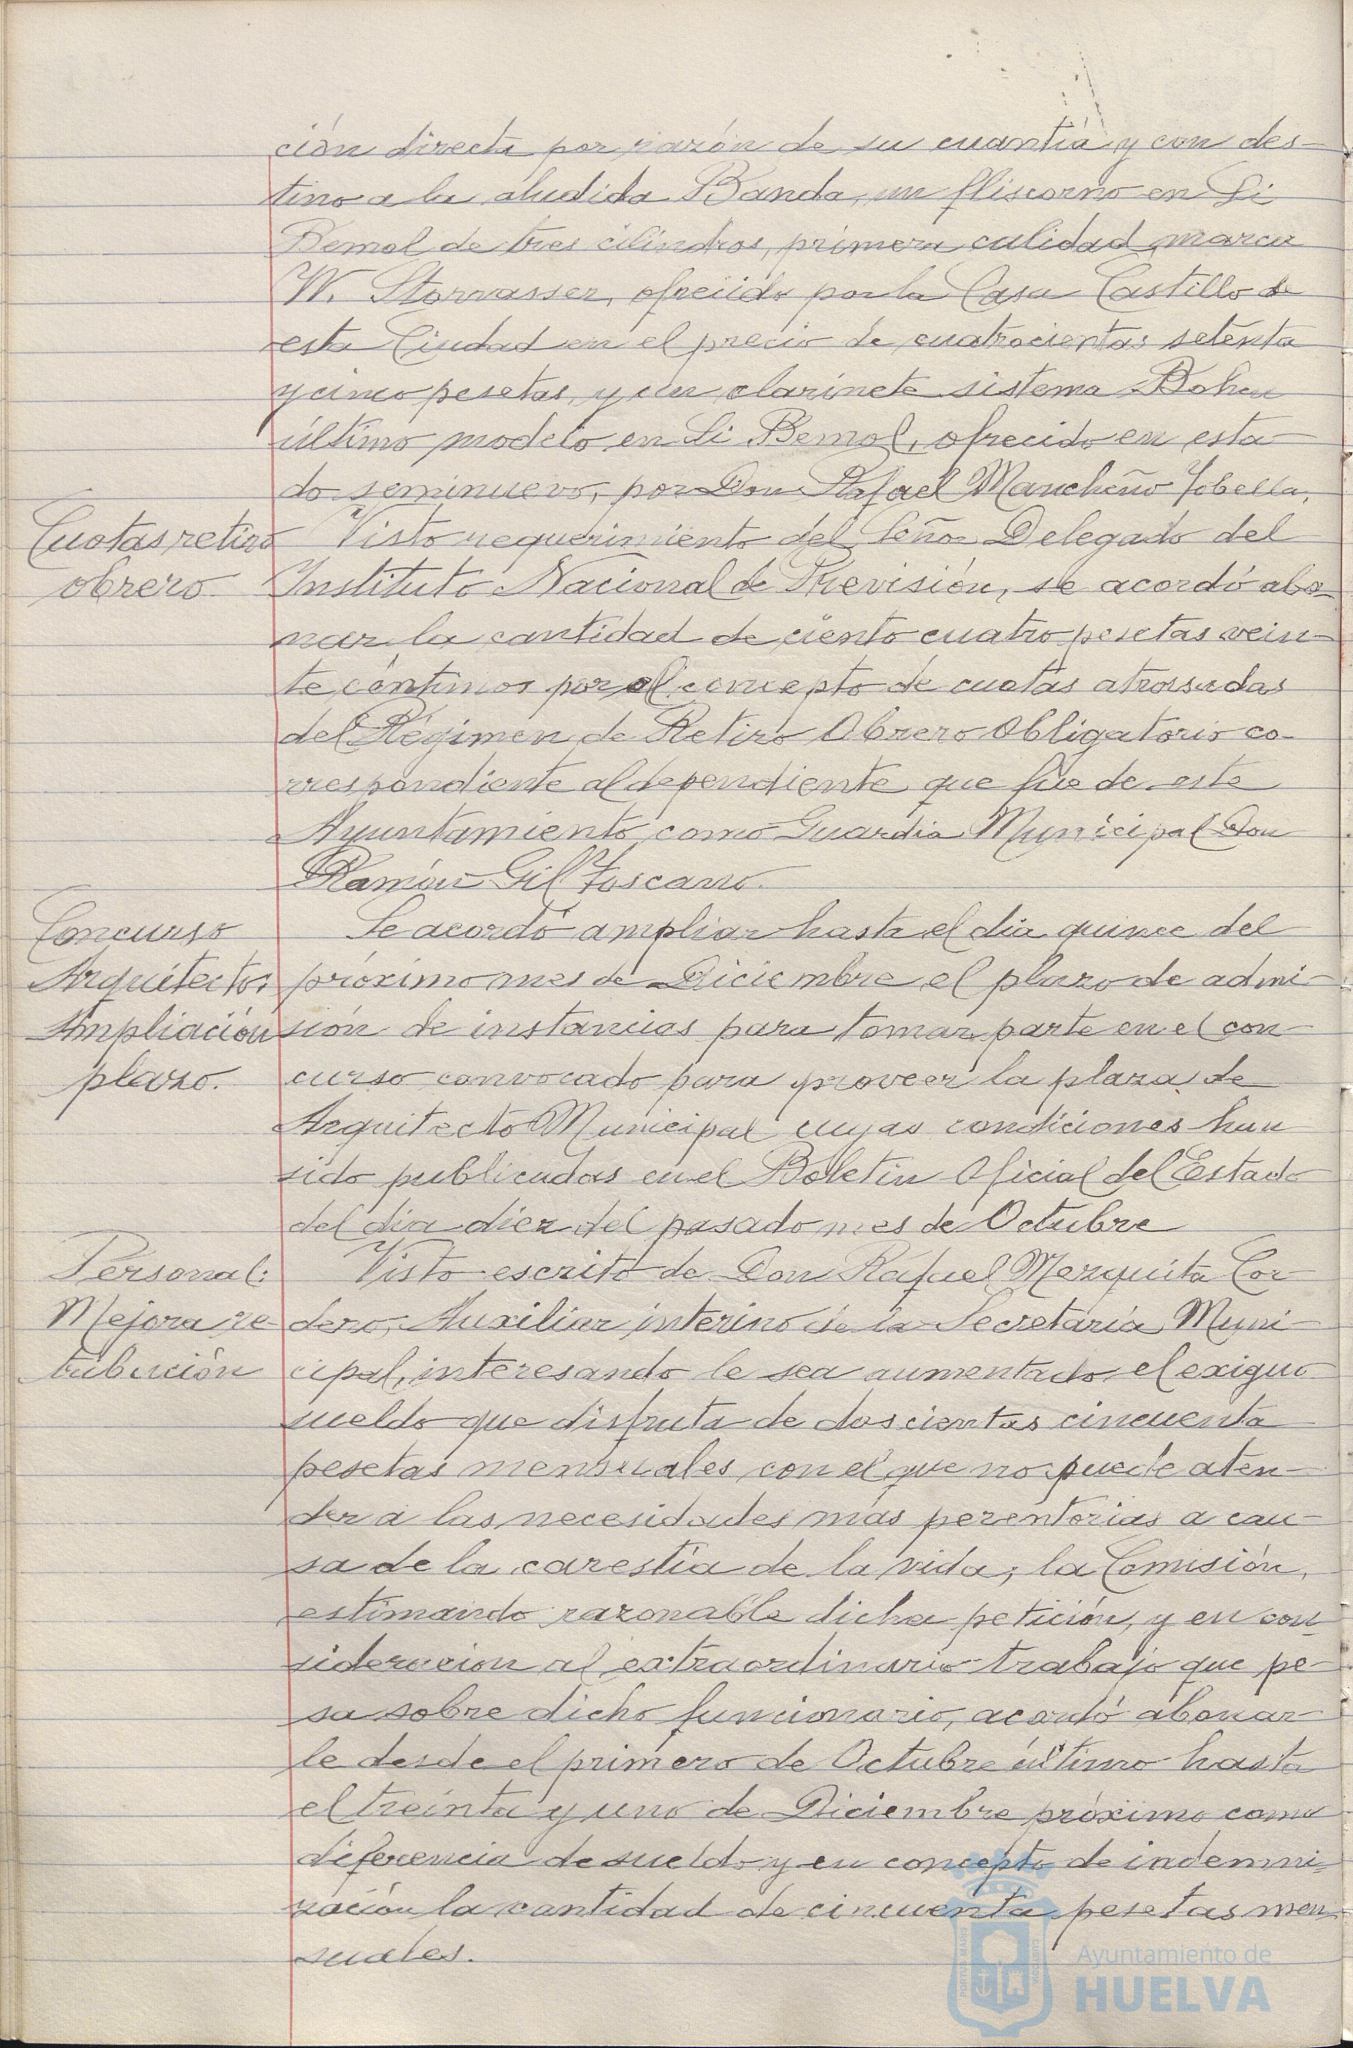 ción directa por razón de su cuantía y con des-
tino a la aludida Banda, un fliscorno en Si
Bemol de tres cilindros, primera calidad, marca
W. Storvasser, ofrecido por la Casa Castillo de
esta Ciudad en el precio de cuatrocientas setenta
y cinco pesetas, y un clarinete sistema Bohen
último modelo en Si Bemol, ofrecido en esta-
do seminuevo, por Don Rafael Mancheño Jobella.
Cuotas retiro
obrero.
Visto requerimiento del Señor Delegado del
Instituto Nacional de Previsión, se acordó abo-
nar la cantidad de ciento cuatro pesetas vein-
te céntimos por el concepto de cuotas atrasadas
del Régimen de Retiro Obrero Obligatorio co-
rrespondiente al dependiente que fué de este
Ayuntamiento como Guardia Municipal Don
Ramón Gil Toscano.
Concurso
Arquitecto:
Ampliación
plazo.
Se acordó ampliar hasta el día quince del
próximo mes de Diciembre el plazo de admi-
sión de instancias para tomar parte en el con-
curso convocado para proveer la plaza de
Arquitecto Municipal cuyas condiciones han
sido publicadas en el Boletín Oficial del Estado
del día diez del pasado mes de Octubre
Personal:
Mejora re-
tribución
Visto escrito de Don Rafael Mezquita Cor-
dero, Auxiliar interino de la Secretaría Muni-
cipal, interesando le sea aumentado el exiguo
sueldo que disfruta de doscientas cincuenta
pesetas mensuales con el que no puede aten-
der a las necesidades más perentorias a cau-
sa de la carestía de la vida; la Comisión,
estimando razonable dicha petición, y en con-
sideración al extraordinario trabajo que pe-
sa sobre dicho funcionario, acordó abonar-
le desde el primero de Octubre último hasta
el treinta y uno de Diciembre próximo como
diferencia de sueldo y en concepto de indemni-
zación la cantidad de cincuenta pesetas men-
suales.
Ayuntamiento de
HUELVA